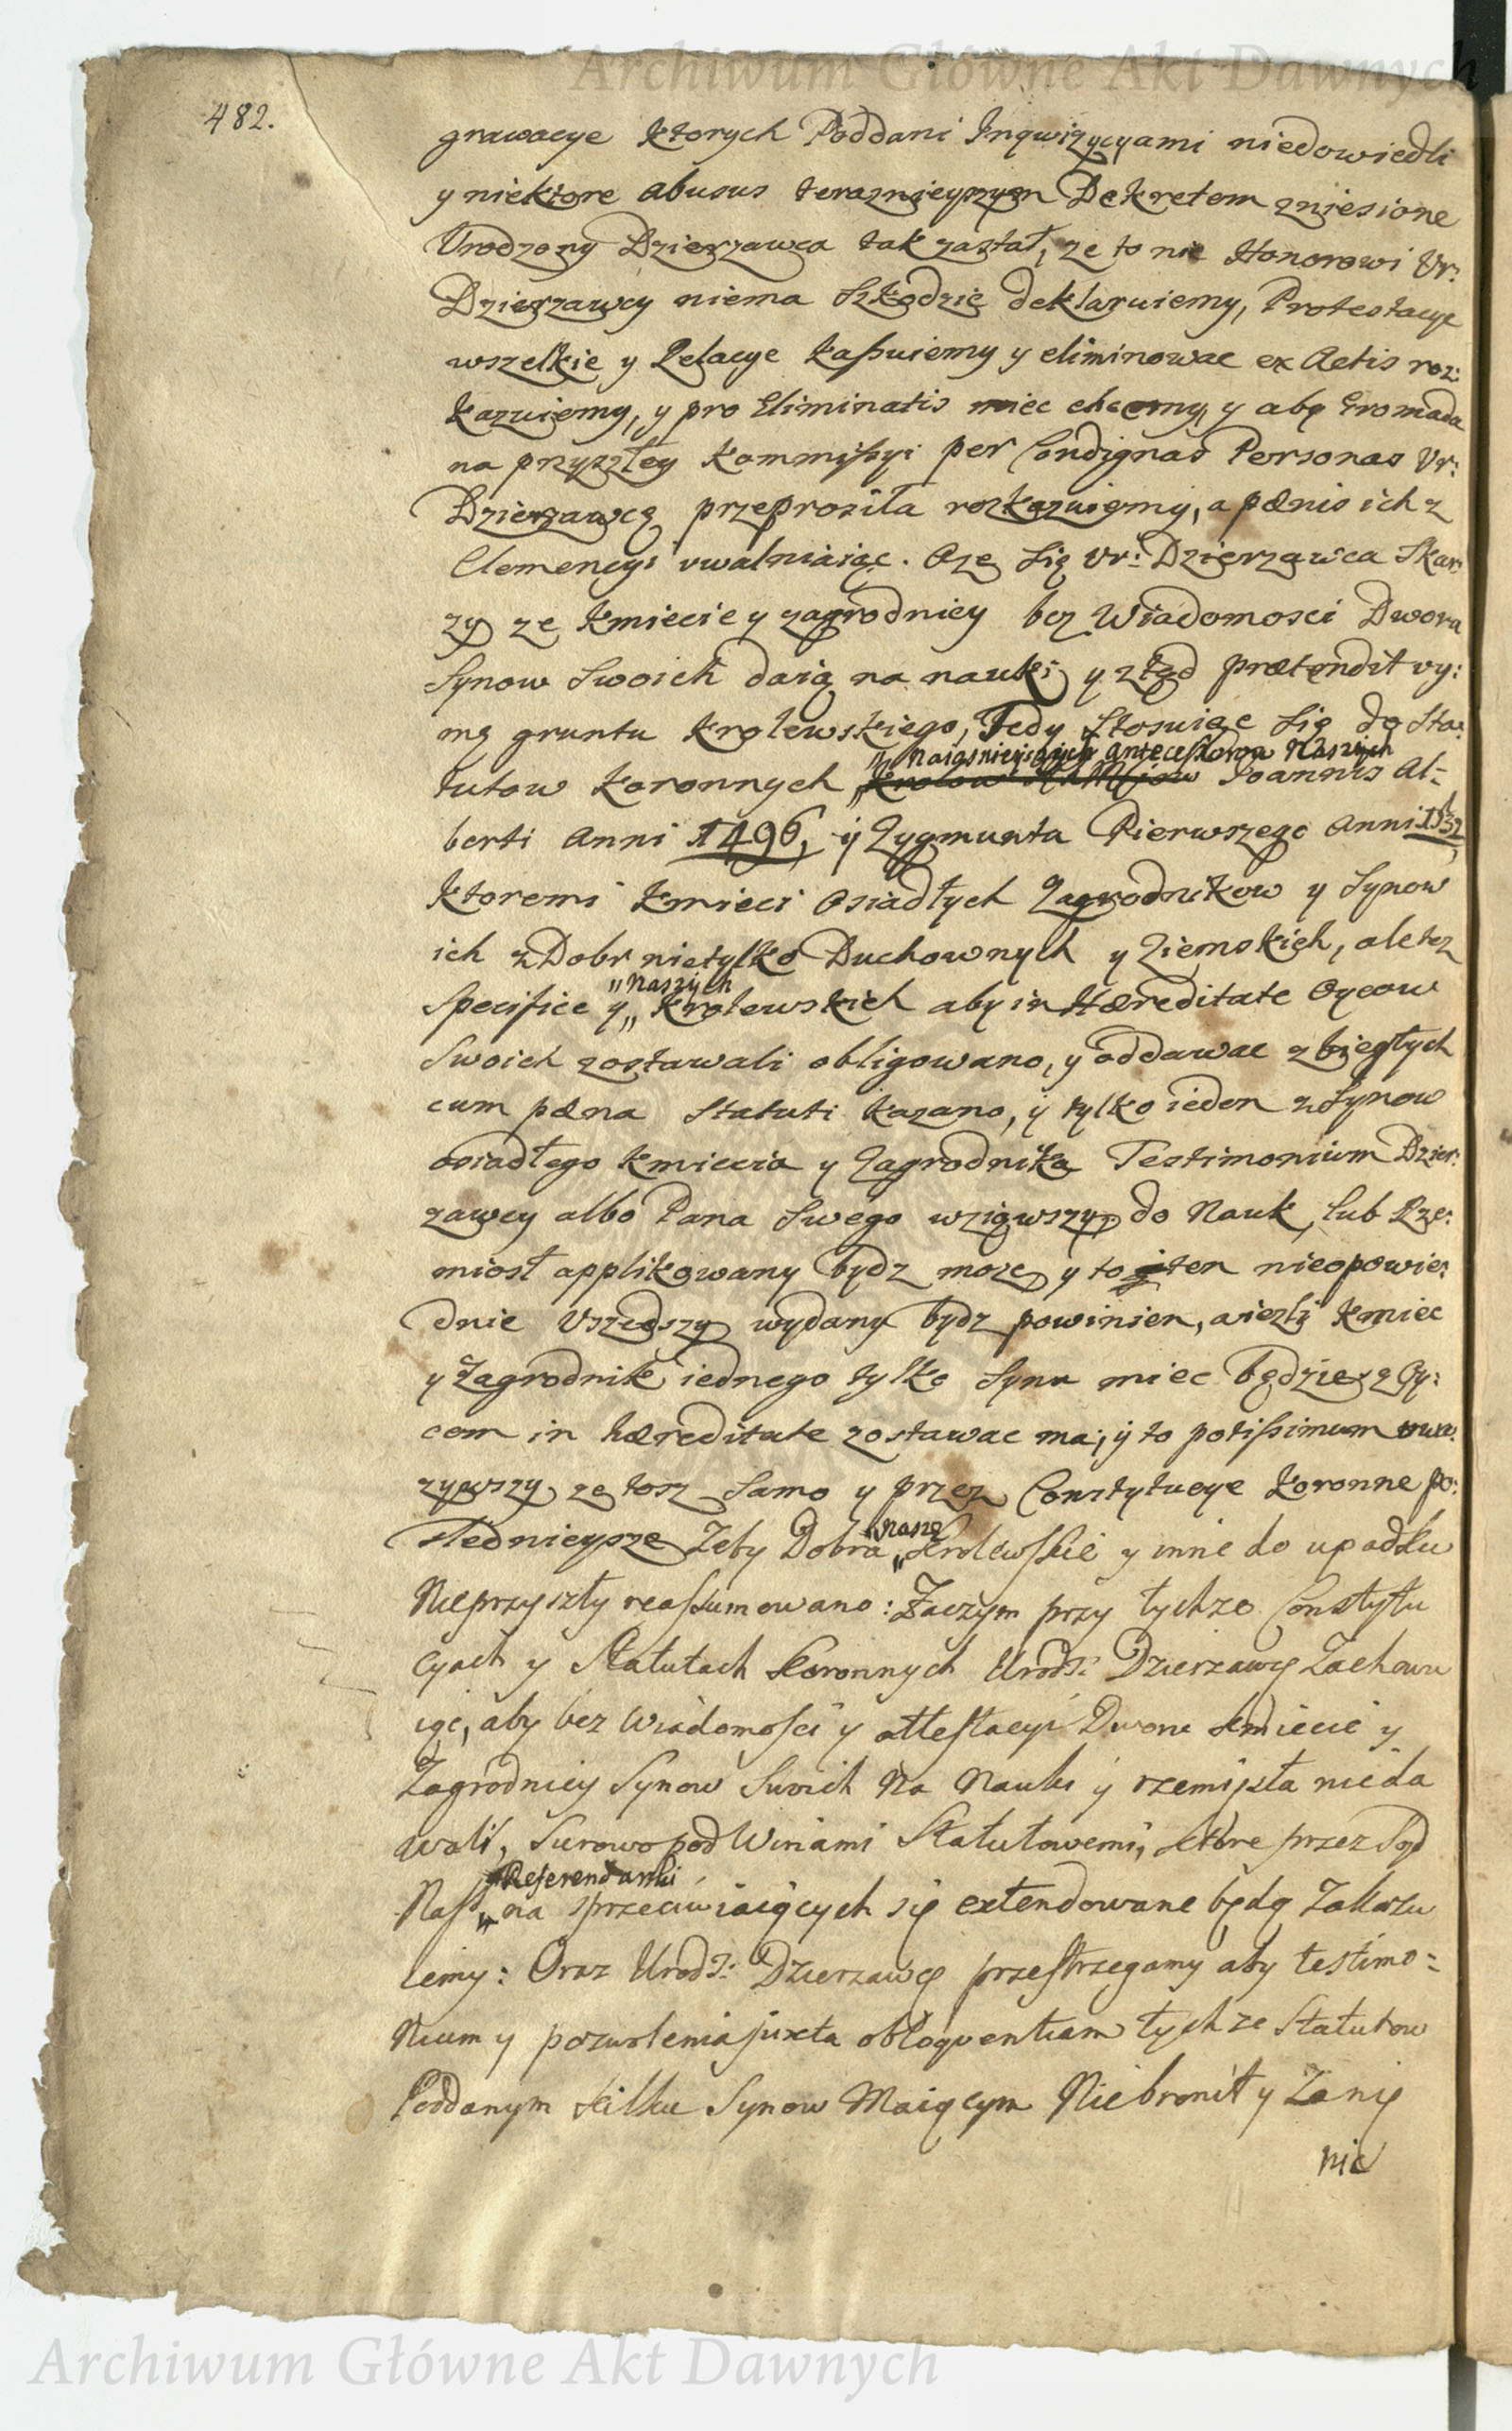 Archiwum Główne Akt Dawnych
482.
grawacye ktorych Poddani Inqwizycyami niedowiedli
y niektore abusus teraznieyszym Dekretem zniesione
Urodzony Dzierzawca tak zastał, ze to nic Honorowi Ur:
Dzierzawcy niema Szkodzic deklaruiemy, Protestacye
wszelkie y Relacye kassuiemy y eliminowac ex Actis roz:
kazuiemy, y pro Eliminatis miec chcemy, y aby Gromada
na przyszłey kommissyi per Condignas Personas Ur:
Dzierzawcę przeprosiła roskazuiemy, a pænis ich z
Clemencyi uwalniaiąc. Oze Się Ur: Dzierzawca Skar:
zy ze kmiecie y zagrodnicy bez Wiadomosci Dwora
Synow Swoich daią na nauki y ztąd prætendit uy:
mę gruntu krolewskiego, Tedy Stosuiąc Się do Sta:
„Naiasnieyszych Antecessorow Naszych
tutow koronnych „ Joannis Al:
berti Anni 1496, y Zygmunta Pierwszego Anni 1532
ktoremi kmieci Osiadłych Zagrodnikow y Synow
ich z Dobr nietylko Duchownych y Ziemskich, ale tez
„Naszych
Specifice y „ krolewskich aby in Hæreditate Oycow
Swoich zostawali obligowano, y oddawac zbiegłych
cum pæna Statuti kazano, y tylko ieden z Synow
osiadłego kmiecia y Zagrodnika Testimonium Dzier:
zawcy albo Pana Swego wziąwszy do Nauk, lub Rze:
miosł applikowany bydz moze y to ten nieopowie:
dnie Uszedszy wydany bydz powinien, aiezli kmiec
y Zagrodnik iednego tylko Syna miec będzie z Oy:
cem in hæreditate zostawac ma; y to potissimum uwa:
zywszy ze tosz Samo y przez Constytucye koronne po:
„Nasze
slednieysze Zeby Dobra „ krolewskie y inne do upadku
Nieprzyszły reassumowano: Zaczym przy tychze Constytu
cyach y Statutach koronnych Urodz: Dzierzawcę Zachowu
iąc, aby bez Wiadomosci y attestacyi Dworu kmiecie y
Zagrodnicy Synow Swoich Na Nauki y rzemiosła nieda
wali, Surowo pod Winami Statutowemi, ktore przez Sąd
Referendarski
Nasz „ na sprzeciwiaiących się extendowane będą Zakazu
iemy: Oraz Urodz: Dzierzawcę przestrzegamy aby testimo=
nium y pozwolenia juxta obloquentiam tychze Statutow
Poddanym kilku Synow Maiącym Niebronił y Zanię
nic
Archiwum Główne Akt Dawnych